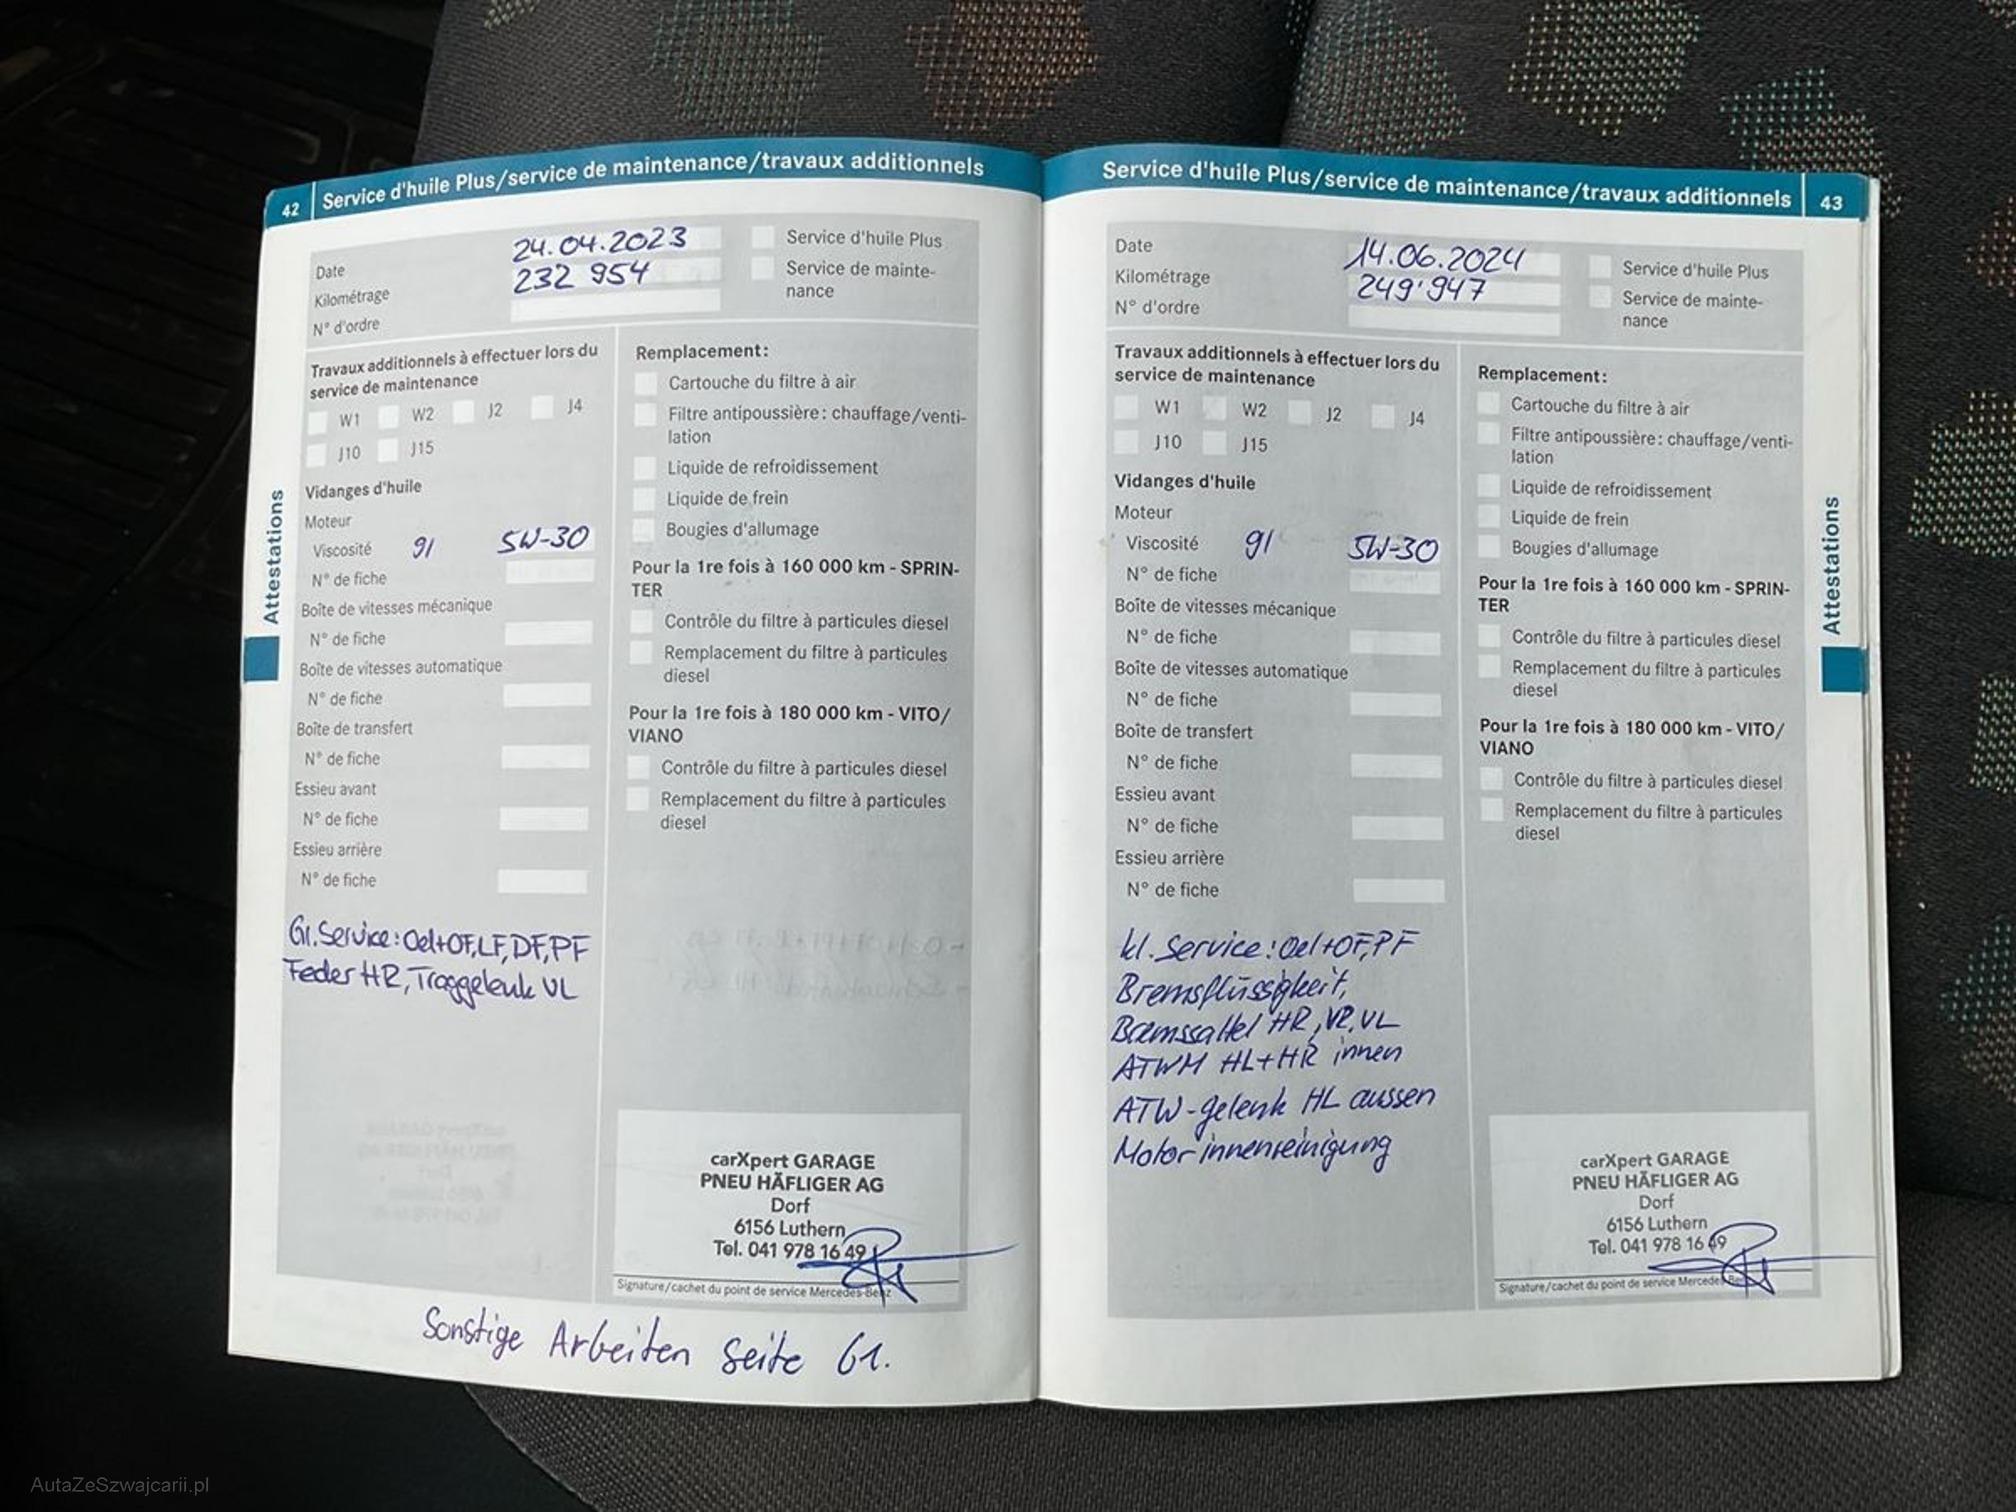 42 Service d'huile Plus/service de maintenance/travaux additionnels
Date 24.04.2023
Kilométrage 232 954
N° d'ordre
Service d'huile Plus
Service de mainte-
nance
Travaux additionnels à effectuer lors du
service de maintenance
W1 W2 J2 J4
J10 J15
Vidanges d'huile
Moteur
Viscosité 9l 5W-30
N° de fiche
Boîte de vitesses mécanique
N° de fiche
Boîte de vitesses automatique
N° de fiche
Boîte de transfert
N° de fiche
Essieu avant
N° de fiche
Essieu arrière
N° de fiche
Gr.Service: Oel+OF,LF,DF,PF
Feder HR, Traggelenk VL
Remplacement:
Cartouche du filtre à air
Filtre antipoussière: chauffage/venti-
lation
Liquide de refroidissement
Liquide de frein
Bougies d'allumage
Pour la 1re fois à 160 000 km - SPRIN-
TER
Contrôle du filtre à particules diesel
Remplacement du filtre à particules
diesel
Pour la 1re fois à 180 000 km - VITO/
VIANO
Contrôle du filtre à particules diesel
Remplacement du filtre à particules
diesel
carXpert GARAGE
PNEU HÄFLIGER AG
Dorf
6156 Luthern
Tel. 041 978 16 49
Signature/cachet du point de service Mercedes-Benz
Sonstige Arbeiten Seite 61.
Attestations
Service d'huile Plus/service de maintenance/travaux additionnels 43
Date 14.06.2024
Kilométrage 249'947
N° d'ordre
Service d'huile Plus
Service de mainte-
nance
Travaux additionnels à effectuer lors du
service de maintenance
W1 W2 J2 J4
J10 J15
Vidanges d'huile
Moteur
Viscosité 9l 5W-30
N° de fiche
Boîte de vitesses mécanique
N° de fiche
Boîte de vitesses automatique
N° de fiche
Boîte de transfert
N° de fiche
Essieu avant
N° de fiche
Essieu arrière
N° de fiche
kl. Service: Oel+OF,PF
Bremsflüssigkeit,
Bremssattel HR, VR, VL
ATWM HL+HR innen
ATW-gelenk HL aussen
Motorinnenreinigung
Remplacement:
Cartouche du filtre à air
Filtre antipoussière: chauffage/venti-
lation
Liquide de refroidissement
Liquide de frein
Bougies d'allumage
Pour la 1re fois à 160 000 km - SPRIN-
TER
Contrôle du filtre à particules diesel
Remplacement du filtre à particules
diesel
Pour la 1re fois à 180 000 km - VITO/
VIANO
Contrôle du filtre à particules diesel
Remplacement du filtre à particules
diesel
carXpert GARAGE
PNEU HÄFLIGER AG
Dorf
6156 Luthern
Tel. 041 978 16 49
Signature/cachet du point de service Mercedes-Benz
Attestations
AutaZeSzwajcarii.pl